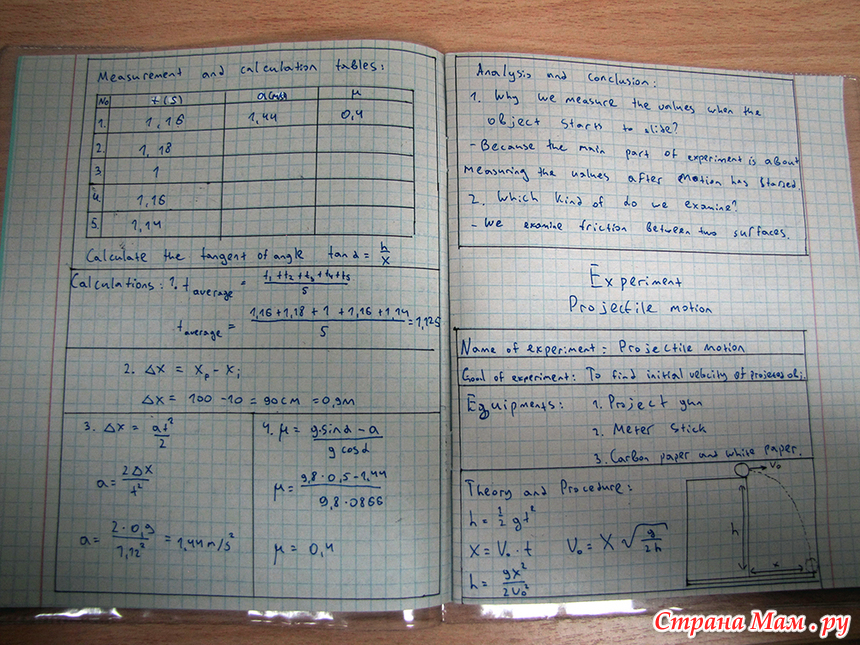 Measurement and calculation tables:
No t(s) a(m/s²) μ
1. 1,16 1,44 0,4
2. 1,18
3. 1
4. 1,16
5. 1,14
Calculate the tangent of angle tanα = h/x
Calculations: 1. t average = t₁ + t₂ + t₃ + t₄ + t₅ / 5
t average = 1,16 + 1,18 + 1 + 1,16 + 1,14 / 5 = 1,12s
2. Δx = xₚ - xᵢ
Δx = 100 - 10 = 90cm = 0,9m
3. Δx = at²/2
a = 2Δx/t²
a = 2·0,9/1,12² = 1,44m/s²
4. μ = g·sinα - a / g cosα
μ = 9,8·0,5 - 1,44 / 9,8·0866
μ = 0,4
Analysis and conclusion:
1. Why we measure the values when the
object starts to slide?
- Because the main part of experiment is about
measuring the values after motion has started.
2. Which kind of do we examine?
- We examine friction between two surfaces.
Experiment
Projectile motion
Name of experiment: Projectile motion
Goal of experiment: To find initial velocity of projected obj.
Equipments: 1. Project gun
2. Meter stick
3. Carbon paper and white paper.
Theory and Procedure:
h = ½ gt²
x = V₀ · t
V₀ = X √(g/2h)
h = gx²/2V₀²
V₀
h
x
Страна Мам.ру